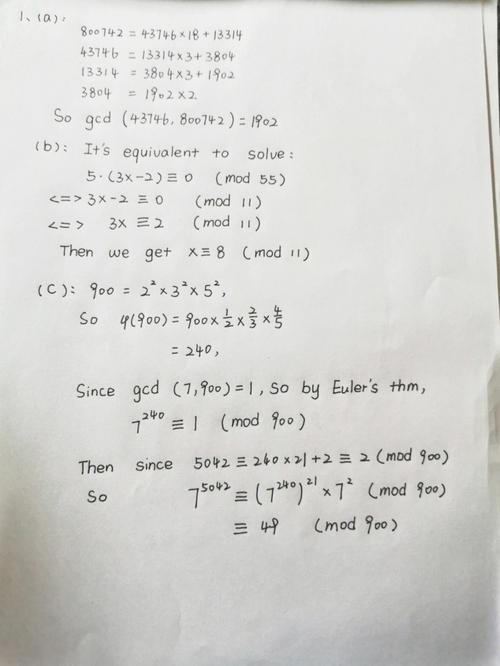 1、(a):
800742 = 43746×18 + 13314
43746 = 13314×3 + 3804
13314 = 3804×3 + 1902
3804 = 1902×2
So gcd (43746, 800742) = 1902
(b): It's equivalent to solve:
5·(3x-2) ≡ 0 (mod 55)
<=> 3x-2 ≡ 0 (mod 11)
<=> 3x ≡ 2 (mod 11)
Then we get x ≡ 8 (mod 11)
(C): 900 = 2² × 3² × 5²,
So φ(900) = 900 × 1/2 × 2/3 × 4/5
= 240,
Since gcd (7, 900) = 1, so by Euler's thm,
7²⁴⁰ ≡ 1 (mod 900)
Then since 5042 ≡ 240 × 21 + 2 ≡ 2 (mod 900)
So 7⁵⁰⁴² ≡ (7²⁴⁰)²¹ × 7² (mod 900)
≡ 49 (mod 900)